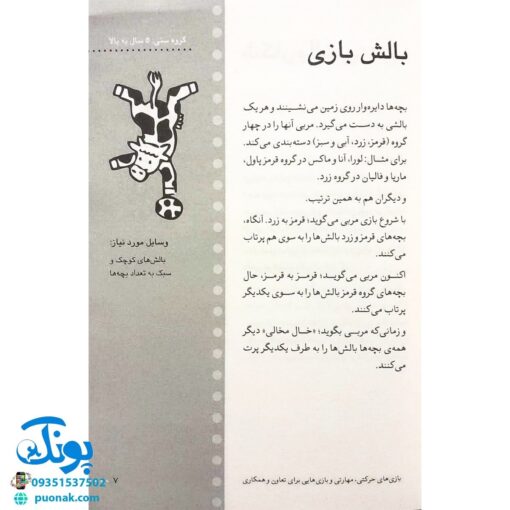 بالش بازی
بچه‌ها دایره‌وار روی زمین می‌نشینند و هر یک
بالشی به دست می‌گیرد. مربی آنها را در چهار
گروه (قرمز، زرد، آبی و سبز) دسته‌بندی می‌کند.
برای مثال: لورا، آنا و ماکس در گروه قرمز پاول،
ماریا و فالیان در گروه زرد.
و دیگران هم به همین ترتیب.
با شروع بازی مربی می‌گوید؛ قرمز به زرد. آنگاه،
بچه‌های قرمز و زرد بالش‌ها را به سوی هم پرتاب
می‌کنند.
اکنون مربی می‌گوید؛ قرمز به قرمز، حال
بچه‌های گروه قرمز بالش‌ها را به سوی یکدیگر
پرتاب می‌کنند.
و زمانی‌که مربی بگوید؛ «خال مخالی» دیگر
همه‌ی بچه‌ها بالش‌ها را به طرف یکدیگر پرت
می‌کنند.
گروه سنی: ۵ سال به بالا
وسایل مورد نیاز:
بالش‌های کوچک و
سبک به تعداد بچه‌ها
بازی‌های حرکتی، مهارتی و بازی‌هایی برای تعاون و همکاری
۷
پونک
09351537502
puonak.com